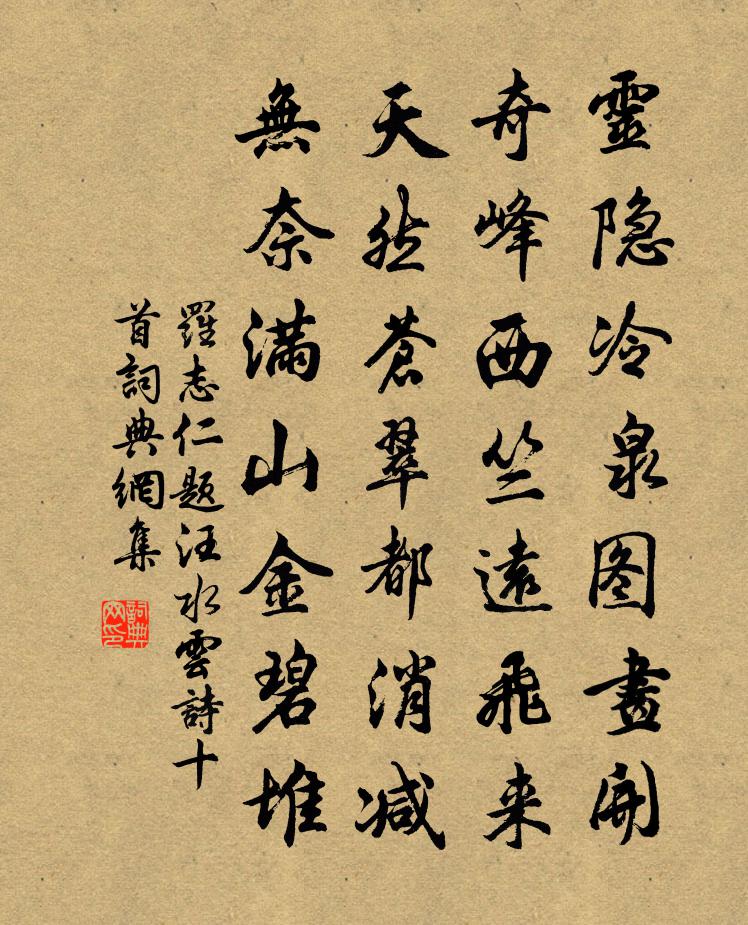 靈隐冷泉图畫開
奇峰西竺遠飛来
天然蒼翠都消减
無奈满山金碧堆
羅志仁题汪水雲詩十
首詞典網集
詞典
网印